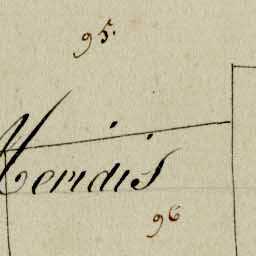 95.
Meridis
96